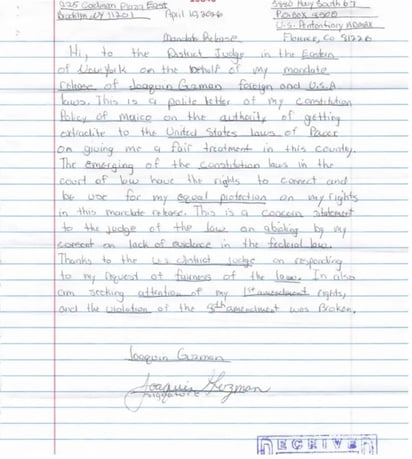 225 Cadman Plaza East
Brooklyn NY 11201
April 10, 2026
5880 Hwy South 67
U.S. Penitentiary ADMAX
Florence, Co 81226
Mandate Release
Hi, to the District Judge in the Eastern
of New York on the behalf of my mandate
release of Joaquin Guzman foreign and U.S.A
laws. This is a polite letter of my constitution
Policy of on the authority of getting
extradite to the United States laws of
on giving me a fair treatment in this country.
The emerging of the constitution laws in the
court of law have the rights to correct and
be use for my equal protection on my rights
in this mandate release. This is a concern statement
to the judge of the law on abiding by my
consent on lack of evidence in the federal law.
Thanks to the U.S District Judge on responding
to my request at fairness of the law. In also
am seeking attention of my 1st amendment rights,
and the violation of the 8th amendment was Broken.
Joaquin Guzman
Joaquin Guzman
Signature
RECEIVED